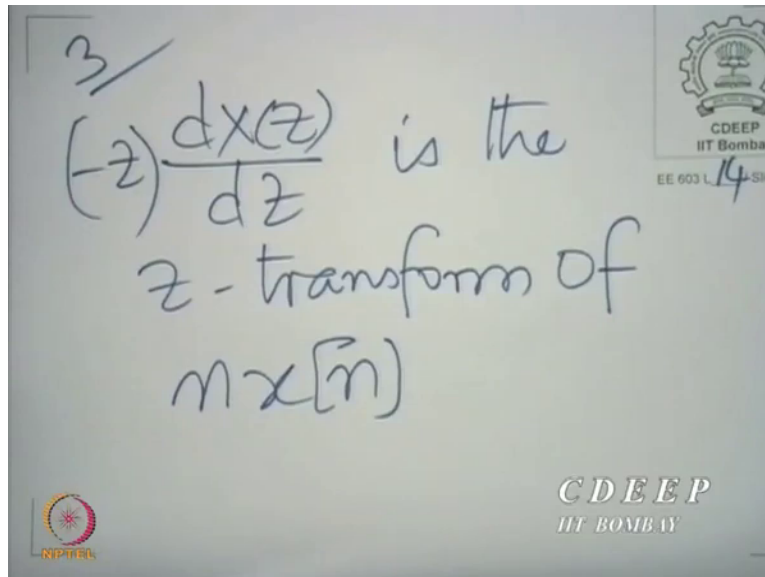 3/
(-z) dX(z)/dz is the
z - transform of
n x[n]
CDEEP
IIT Bomba
EE 603 L 14 Sl
CDEEP
IIT BOMBAY
NPTEL